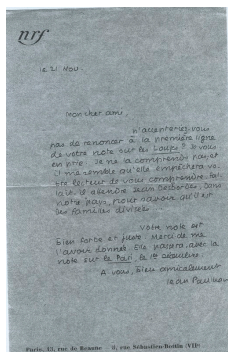 nrf
le 21 Nov.
mon cher ami,
n'accepteriez-vous
pas de renoncer à la première ligne
de votre note sur les Loups? Je vous
en prie. Je ne la comprends pas, et
il me semble qu'elle empêchera
lecteur de vous comprendre.
notre pays, pour savoir qu'il est
des familles divisées.
Votre note est
bien forte et juste. Merci de me
l'avoir donnée. Elle passera, avec la
note sur le Pari, le 1er décembre.
A vous, bien amicalement
Jean Paulhan
Paris, 43, rue de Beaune — 5, rue Sébastien-Bottin (VIIe)